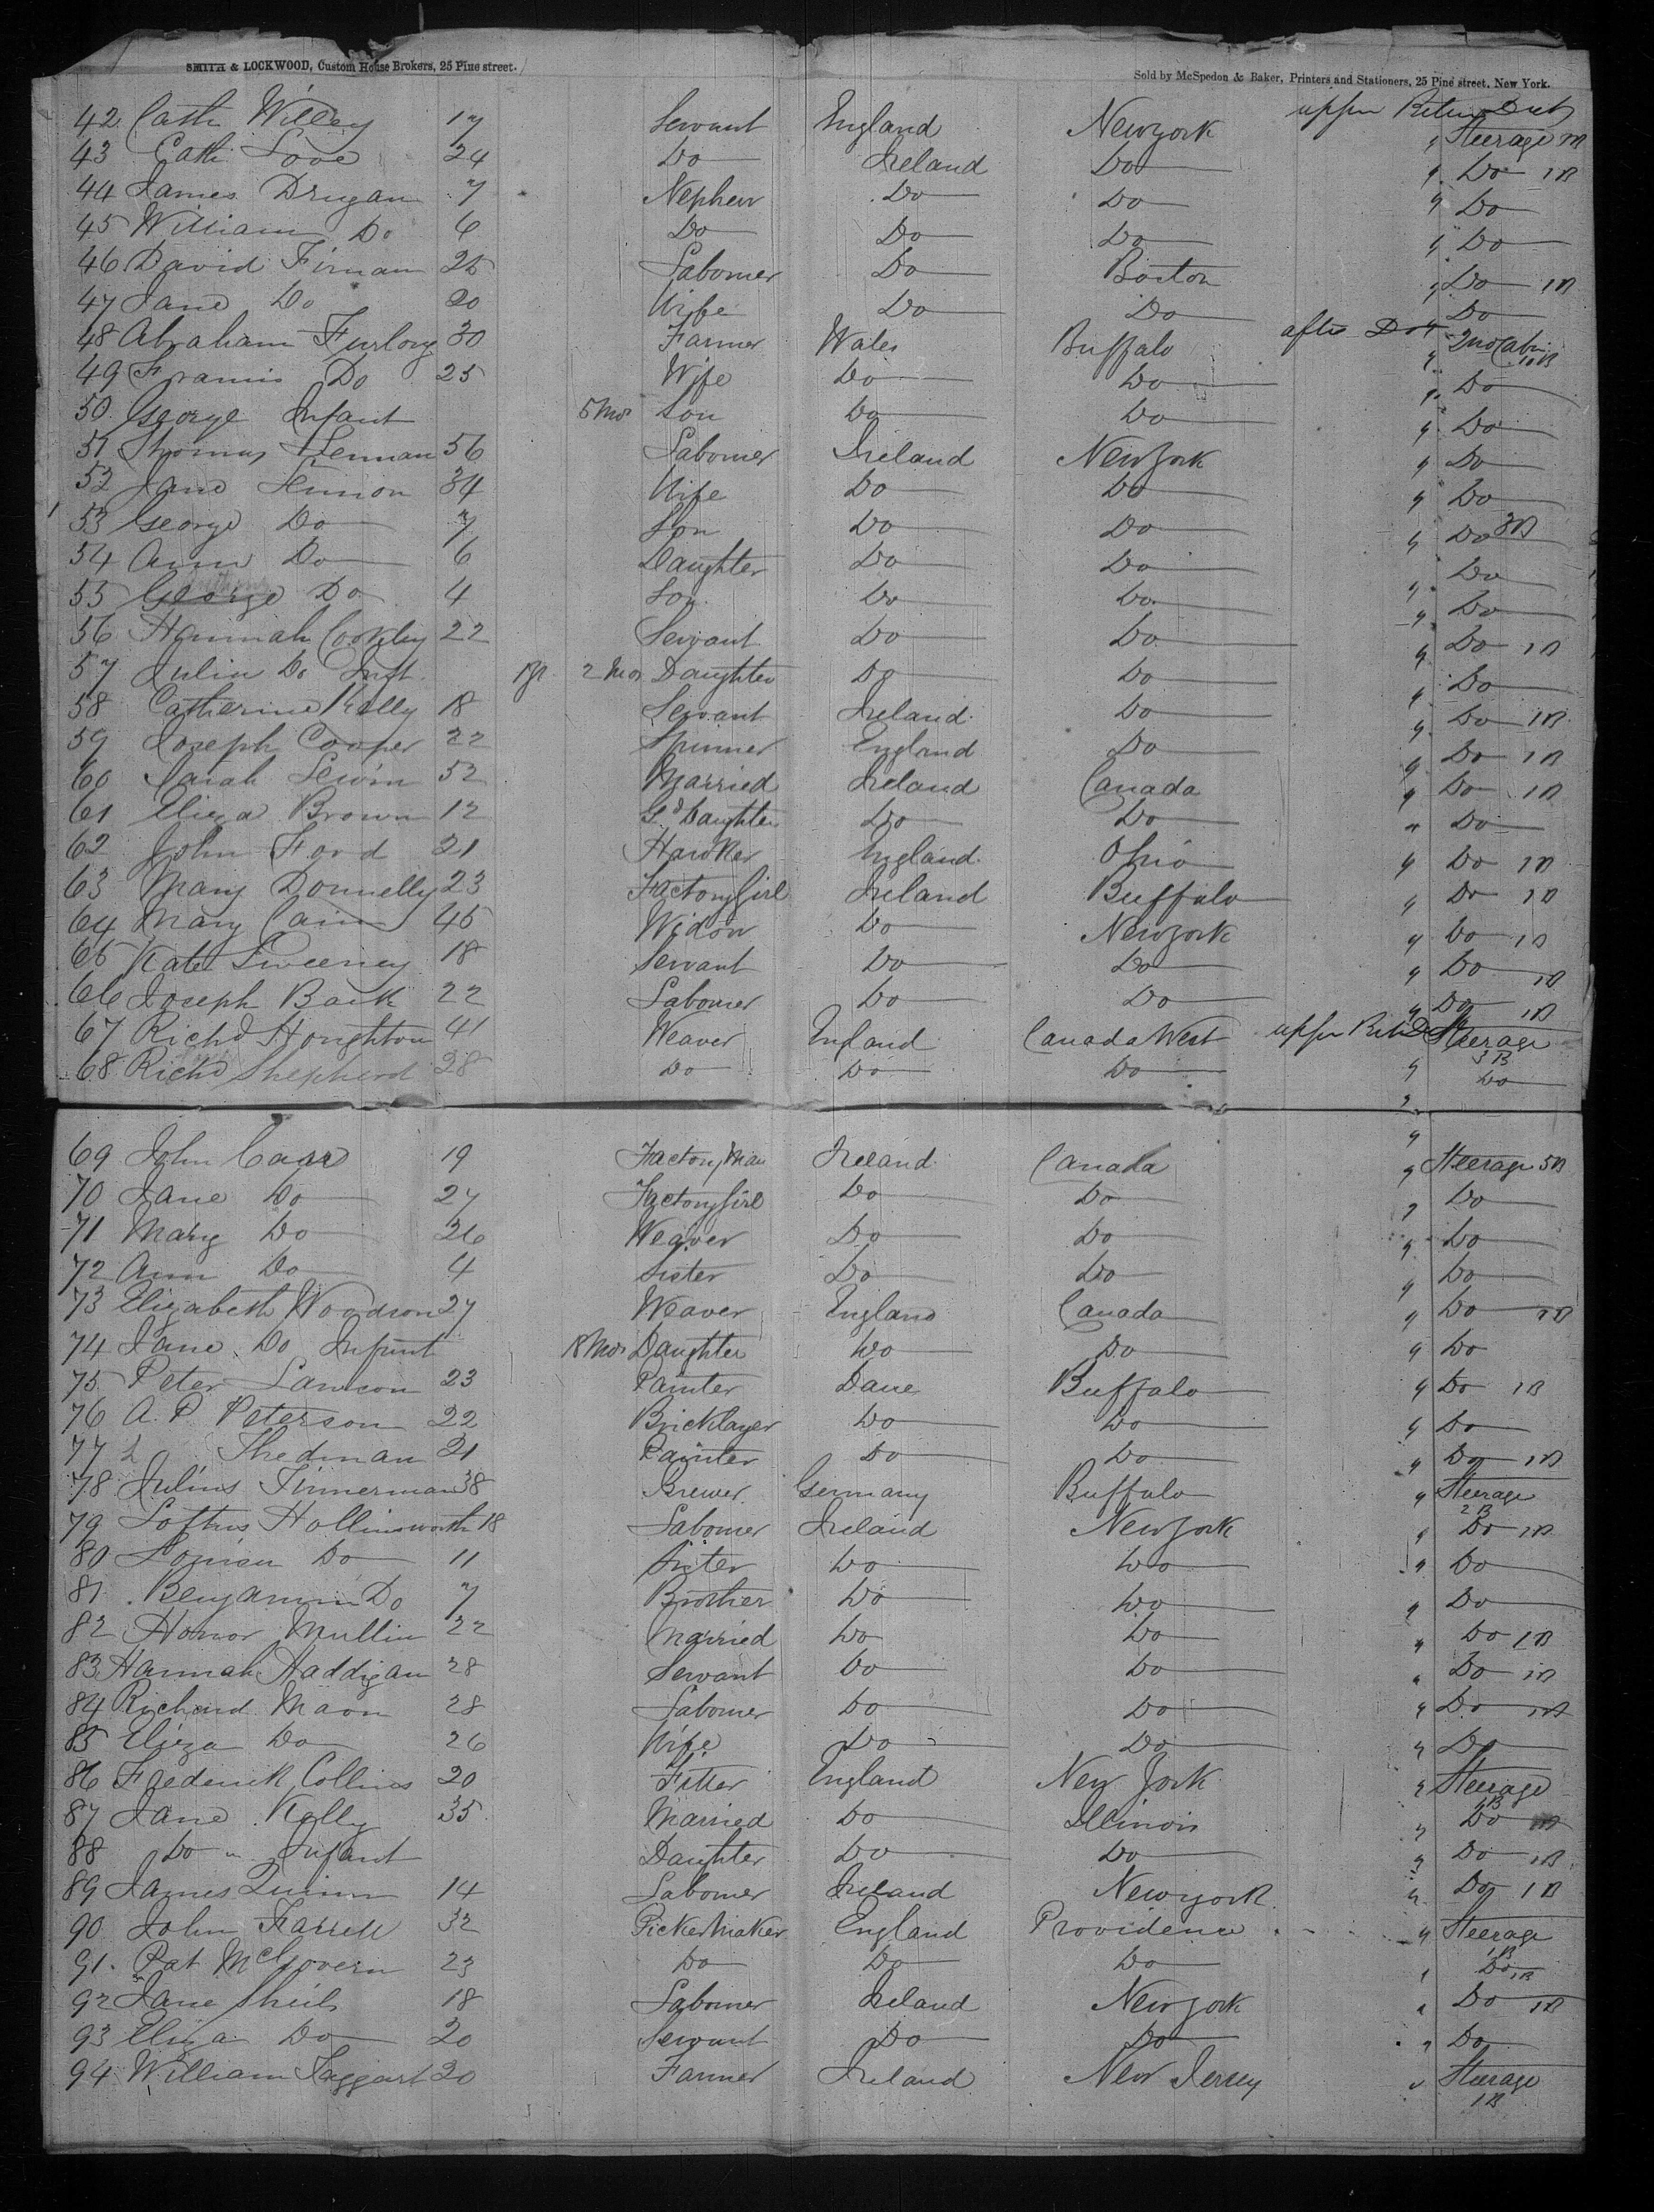 SMITH & LOCKWOOD, Custom House Brokers, 25 Pine street.
Sold by McSpedon & Baker, Printers and Stationers, 25 Pine street, New York.
42 Cath Willey 17 Servant England Newyork upper Steerage
43 Cath Love 24 Do Ireland Do " Do 1B
44 James Drugan 7 Nephew Do Do " Do
45 William Do 6 Do Do Do " Do
46 David Firnam 26 Labourer Do Boston " Do 1B
47 Jane Do 20 Wife Do Do " Do
48 Abraham Furlong 30 Farmer Wales Buffalo after Do " 2nd Cabin
49 Francis Do 25 Wife Do Do " Do
50 George Infant 5 Mos Son Do Do " Do
51 Thomas Lennan 56 Labourer Ireland New York " Do
52 Jane Lennon 34 Wife Do Do " Do
53 George Do 7 Son Do Do " Do 3B
54 Ann Do 6 Daughter Do Do " Do
55 George Do 4 Son Do Do " Do
56 Hannah 22 Servant Do Do " Do 1B
57 Julia Do Inft 1yr 2 Mos Daughter Do Do " Do
58 Catherine Kelly 18 Servant Ireland Do " Do 1B
59 Joseph Cooper 22 Spinner England Do " Do 1B
60 Sarah Lewin 52 Married Ireland Canada " Do 1B
61 Eliza Brown 12 Gd Daughter Do Do " Do
62 John Ford 21 Hawker England Ohio " Do 1B
63 Mary Donnelly 23 Factory Girl Ireland Buffalo " Do 1B
64 Mary Cain 45 Widow Do New York " Do 1B
65 Kate Sweeney 18 Servant Do Do " Do 1B
66 Joseph Back 22 Labourer Do Do " Do 1B
67 Richd Houghton 41 Weaver England Canada West upper Steerage 3B
68 Richd Shepherd 28 Do Do Do " Do
69 John Carr 19 Factory Man Ireland Canada " Steerage 5B
70 Jane Do 27 Factory Girl Do Do " Do
71 Mary Do 26 Weaver Do Do " Do
72 Ann Do 4 Sister Do Do " Do
73 Elizabeth Woodson 27 Weaver England Canada " Do 1B
74 Jane Do Infant 18 Mos Daughter Do Do " Do
75 Peter 23 Painter Dane Buffalo " Do 1B
76 A. P. Peterson 22 Bricklayer Do Do " Do
77 L Thedman 21 Painter Do Do " Do 1B
78 Julius Finnerman 38 Brewer Germany Buffalo " Steerage 2B
79 Loftus Hollinsworth 18 Labourer Ireland New York " Do 1B
80 Louisa Do 11 Sister Do Do " Do
81 Benjamin Do 7 Brother Do Do " Do
82 Honor Mullin 22 Married Do Do " Do 1B
83 Hannah Haddigan 28 Servant Do Do " Do 1B
84 Richard Maon 28 Labourer Do Do " Do 1B
85 Eliza Do 26 Wife Do Do " Do
86 Frederick Collins 20 Fitter England New York " Steerage 1B
87 Jane Kelly 35 Married Do Illinois " Do
88 Do " Infant Daughter Do Do " Do 1B
89 James Quinn 14 Labourer Ireland Newyork " Do 1B
90 John Farrell 32 Picker Maker England Providence " Steerage 1B
91 Pat McGovern 23 Do Do Do " Do 1B
92 Jane Sheils 18 Labourer Ireland New York " Do 1B
93 Eliza Do 20 Servant Do Do " Do
94 William Taggart 20 Farmer Ireland New Jersey " Steerage 1B